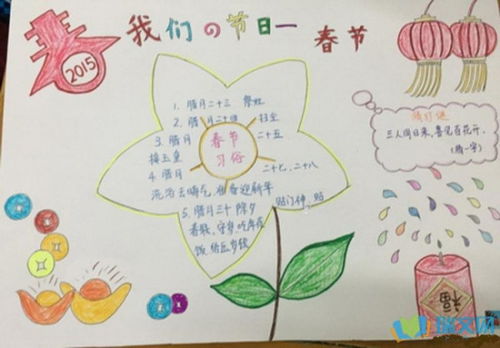 春
2015
我们の节日一春节
1. 腊月二十三 祭灶
2. 腊月二十四 扫尘
3. 腊月 二十五
接玉皇
4. 腊月 二十七、二十八
洗浴去晦气 准备迎新年
5. 腊月三十 除夕 贴门神、贴
春联、守岁、吃年夜
饭、给压岁钱
春节
习俗
猜灯谜
三人同日来,喜见百花开。
(猜一字)
福